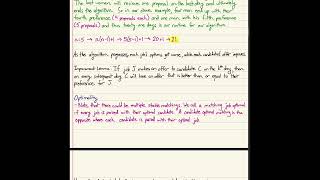 The last women will receive one proposal on the last day and ultimately
ends the algorithm. So in our above example, four men end up with their
fourth preference (4 proposals each) and one man with his fifth preference
(5 proposals) and thus twenty one days is our runtime for our algorithm.
n=5 → n(n-1)+1 → 5(5-1)+1 → 20+1 → 21.
As the algorithm progresses, each job's options get worse, while each candidate's offer improves.
Improvement Lemma: If job J makes an offer to candidate C on the kth day, then
on every subsequent day C will have an offer that is better than or equal to their
preference for J.
Optimality
- Note, that there could be multiple stable matchings. We call a matching job optimal
if every job is paired with their optimal candidate. A candidate optimal matching is the
opposite where each candidate is paired with their optimal job.